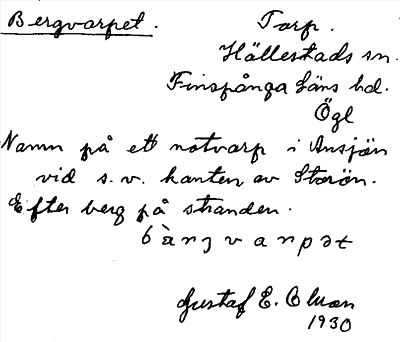 Bergvarpet. Torp.
Hällestads sn.
Finspånga läns hd.
Ögl
Namn på ett notvarp i Ansjön
vid s.v. kanten av Storön.
Efter berg på stranden.
Gustaf E.
1930